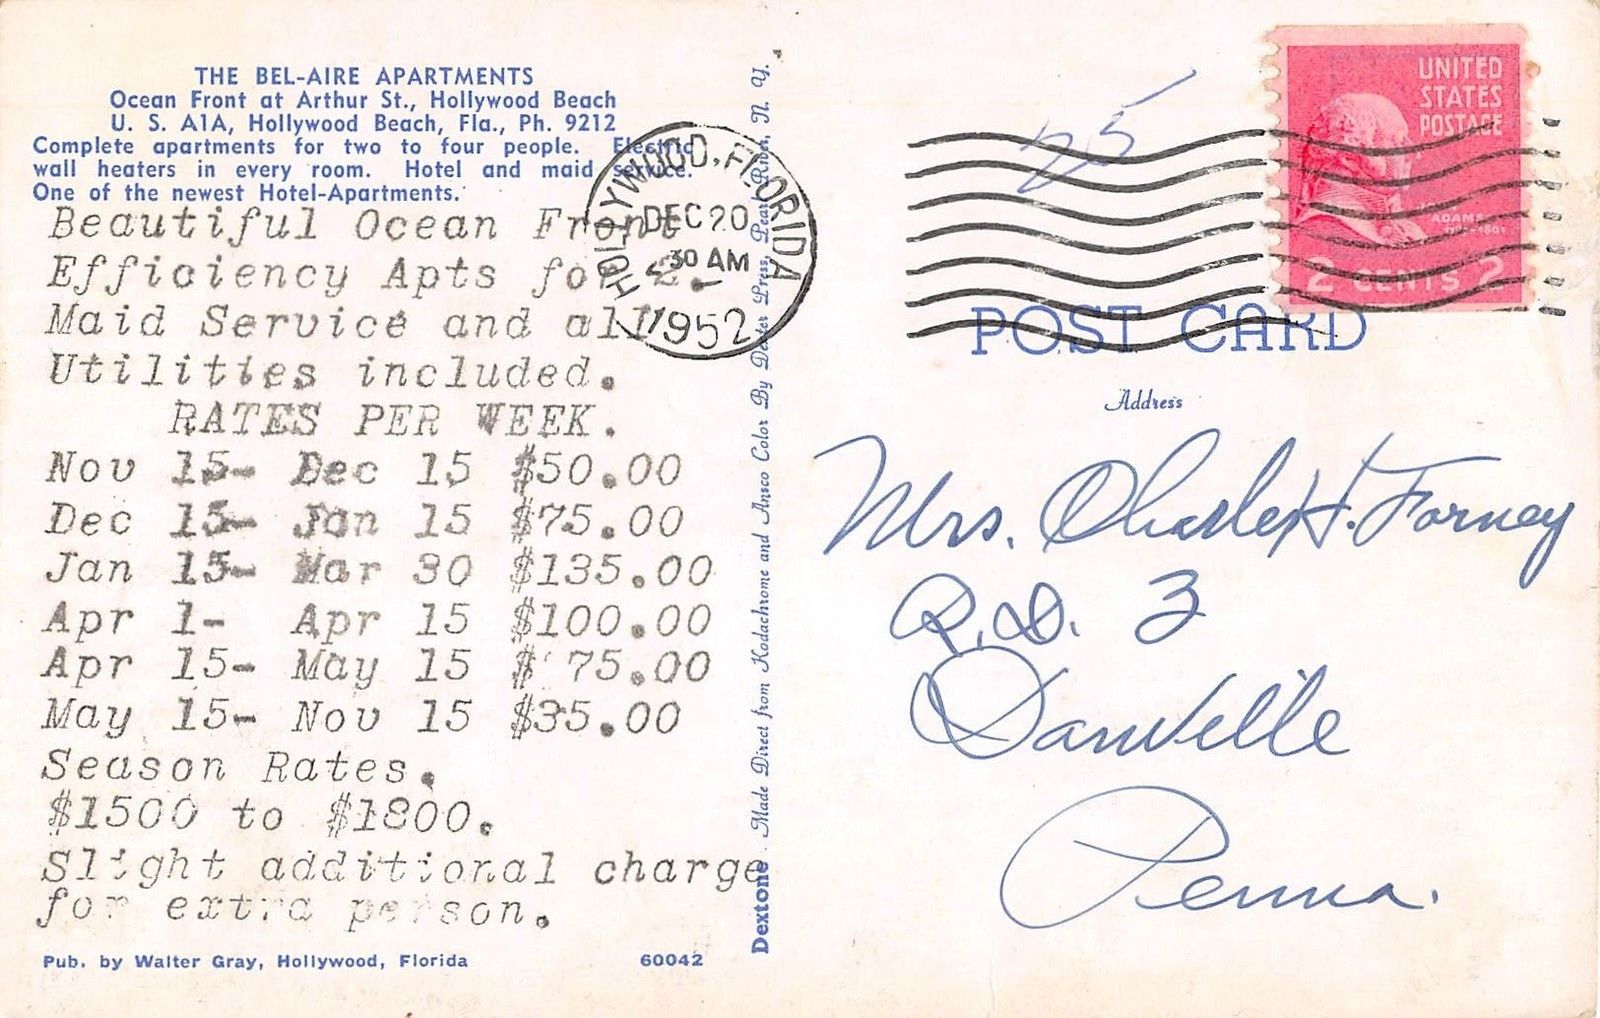 THE BEL-AIRE APARTMENTS
Ocean Front at Arthur St., Hollywood Beach
U. S. A1A, Hollywood Beach, Fla., Ph. 9212
Complete apartments for two to four people. Electric
wall heaters in every room. Hotel and maid service.
One of the newest Hotel-Apartments.
Beautiful Ocean Front
Efficiency Apts for 2.
Maid Service and all
Utilities included.
RATES PER WEEK.
Nov 15- Dec 15 $50.00
Dec 15- Jan 15 $75.00
Jan 15- Mar 30 $135.00
Apr 1- Apr 15 $100.00
Apr 15- May 15 $ 75.00
May 15- Nov 15 $35.00
Season Rates.
$1500 to $1800.
Slight additional charge
for extra person.
Pub. by Walter Gray, Hollywood, Florida 60042
Dextone Made Direct from Kodachrome and Ansco Color By Dexter Press, Pearl River, N. Y.
HOLLYWOOD, FLORIDA
DEC 20
30 AM
1952
25
UNITED
STATES
POSTAGE
ADAMS
2 CENTS 2
POST CARD
Address
Mrs. Charles H. Forney
R.D. 3
Danville
Penna.